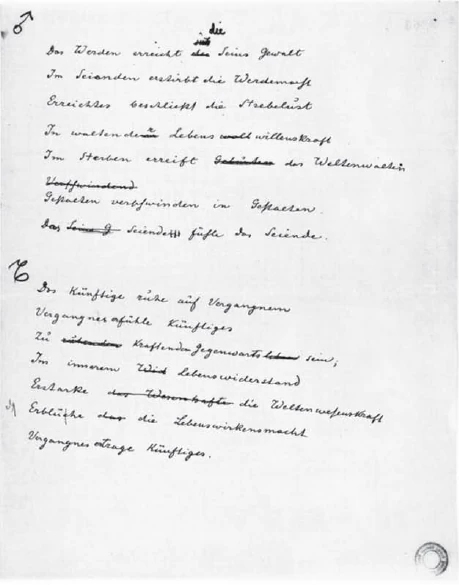 ♂
die
Das Werden erreicht des Seins Gewalt
Im Seienden erstirbt die Werdemacht
Erreichtes beschließt die Strebelust
In waltender Lebens willenskraft
Im Sterben erreift das Weltenwalten
Verschwindend
Gestalten verschwinden in Gestalten.
Das Seins G Seiende fühle das Seiende.
♄
Das Künftige ruhe auf Vergangnem
Vergangnes erfühle Künftiges
Zu kraftenden Gegenwarts sein;
Im innerem Wid Lebenswiderstand
Erstarke die Weltenwesenskraft
Erblühe das die Lebenswirkensmacht
Vergangnes ertrage Künftiges.